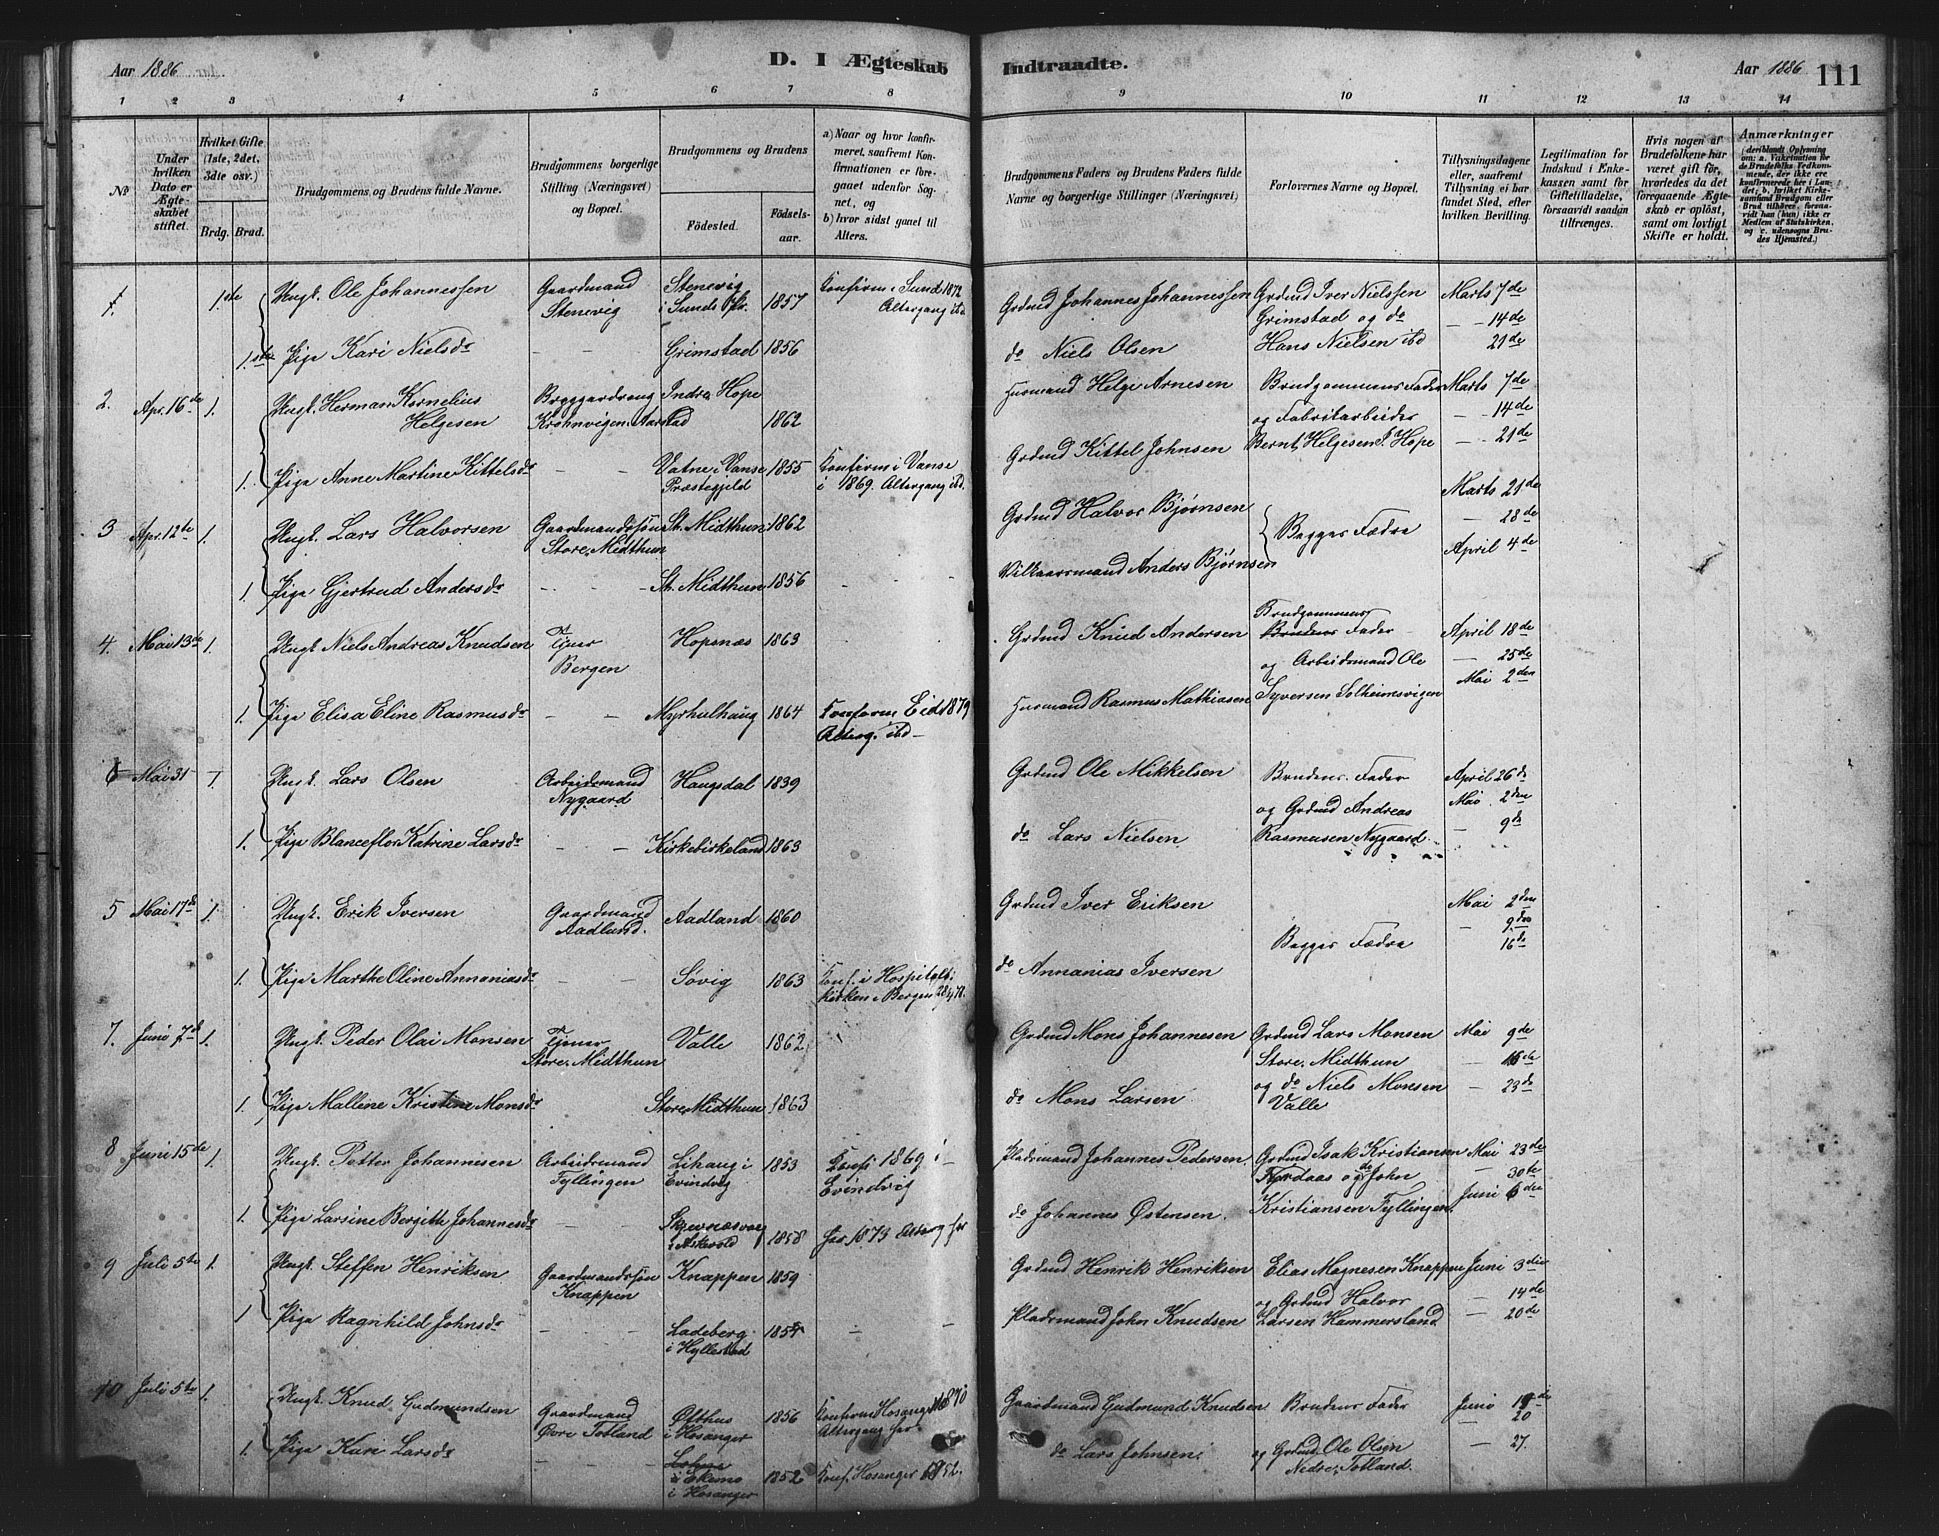 Aar 1886
D. I Ægteskab
Indtraadte.
Aar 1886
111
1 2 3 4 5 6 7 8 9 10 11 12 13 14
№
Under
hvilken
Dato er
Ægte-
skabet
stiftet.
Hvilket Gifte
(1ste, 2det,
3die osv.)
Brdg. Brud.
Brudgommens og Brudens fulde Navne.
Brudgommens borgerlige
Stilling (Næringsvei)
og Bopæl.
Brudgommens og Brudens
Fødested.
Fødsels-
aar.
a) Naar og hvor konfir-
meret, saafremt Kon-
firmationen er fore-
gaaet udenfor Sog-
net, og
b) hvor sidst gaaet til
Alters.
Brudgommens Faders og Brudens Faders fulde
Navne og borgerlige Stillinger (Næringsvei)
Forlovernes Navne og Bopæl.
Tillysningsdagene
eller, saafremt
Tillysning ei har
fundet Sted, efter
hvilken Bevilling.
Legitimation for
Indskud i Enke-
kassen samt for
Giftetilladelse,
forsaavidt saadan
tiltrænges.
Hvis nogen af
Brudefolkene har
været gift før,
hvorledes da det
foregaaende Ægte-
skab er opløst,
samt om lovligt
Skifte er holdt.
Anmærkninger
(deriblandt Oplysning
om: a. Vakcination for
de Brudefolks Vedkom-
mende, der ikke ere
konfirmerede her i Lan-
det; b. hvilket Kirke-
samfund Brudgom eller
Brud tilhører, forsaa-
vidt han (hun) ikke er
Medlem af Statskirken,
og c. udensogns Bru-
des Hjemsted.)
1. 1ste Ungk. Ole Johannessen Gaardmand Stenevig 1857 Konfirm. i Sund 1872 Grdmd Johannes Johannessen Grdmd Iver Nielssen Marts 7de
Stenevig i Sunds Altergang ibd. Grimstad og do — 14de
1ste Pige Kari Nielsdr — — Grimstad 1856 do Niels Olsen Hans Nielsen ibd 21de
2. Apr. 16de 1. Ungk. Herman Kornelius Indre Hope Husmand Helge Arnesen Brudgommens Fader Marts 7de
Helgesen Krohnvigen Aarstad 1862 og Fabrikarbeider — 14de
Grdmd Kittel Johnsen Bernt Helgesen I. Hope — 21de
1. Pige Anne Martine Kittelsdr — — Vatne i Vanse 1855 Konfirm. i Vanse
Præstegjeld i 1869. Altergang ibd.
3 Apr. 12te 1. Ungk. Lars Halvorsen Gaardmandssøn St. Midthun 1862 Grdmd Halvor Bjørnsen Begges Fædre Marts 21de
Store Midthun — 28de
Vilkaarsmand Anders Bjørnsen April 4de
1. Pige Gjertrud Andersdr — — St. Midthun 1856 — —
4. Mai 13de 1. Ungk. Niels Andreas Knudsen Tjener Hopsnæs 1863 Grdmd Knud Andersen Brudgommens Fader April 18de
Bergen og Arbeidsmand Ole — 25de
Syversen Solheimsvigen Mai 2den
1. Pige Elisa Eline Rasmusdr — — Myrhulhaug 1864 Konform. Eid 1879 Husmand Rasmus Mathiasen
Alterg. ibd —
6 Mai 31 1. Ungk. Lars Olsen Arbeidsmand Haugsdal 1839 Grdmd Ole Mikkelsen Brudens Fader April 26de
Nygaard og Grdmd Andreas Mai 2den
1. Pige Blanceflor Katrine Larsdr — — Kirkebirkeland 1863 do Lars Nielsen Rasmusen Nygaard — 9de
5 Mai 17de 1. Ungk. Erik Iversen Gaardmand Aadland 1860 Grdmd Iver Eriksen Mai 2den
Aadland. — 9de
Begges Fædre 16de
1. Pige Marthe Oline Annaniasdr — — Søvig 1863 Konf. i Hospitals- do Annanias Iversen
kirken i Bergen
7. Juni 7de 1. Ungk. Peder Olai Monsen Tjener Valle 1862 Grdmd Mons Johannesen Grdmd Lars Monsen Mai 9de
Store Midthun Store Midthun — 16de
og do Niels Monsen — 23de
1. Pige Mallene Kristine Monsdr Store Midthun 1863 do Mons Larsen Valle
8 Juni 15de 1. Ungk. Petter Johannesen Arbeidsmand Lihaug i 1853 Konf. 1869 i Pladsmand Johannes Pedersen Grdmd Isak Kristiansen Mai 23de
Tyllingen Evindvig Evindvig og do John — 30te
1. Pige Larsine Bergitte Johannesdr — — i Askevold 1858 do Johannes Østensen. Kristiansen Tyllingen. Juni 6de
9 Juli 5te 1. Ungk. Steffen Henriksen Gaardmandssøn Knappen 1859 Grdmd Henrik Henriksen Elias Magnesen Knappen Juni 3die
Knappen og Grdmd Halvor — 14de
1 Pige Ragnhild Johnsdr — — Ladeberg — — Pladsmand John Knudsen Larsen Hammersland — 20de
i Hyllestad
10 Juli 5te 1. Ungk. Knud Gudmundsen Gaardmand Øfthus 1856 Konfirm. Hosanger 1870 Gaardmand Gudmund Knudsen Brudens Fader Juni
Øvre Totland i Hosanger Altergang her — 20
1. Pige Kari Larsdr — — i Hosanger 1852 Konf. Hosanger do Lars Johnsen. og Grdmd Ole Olsen — 27.
Nedre Totland.